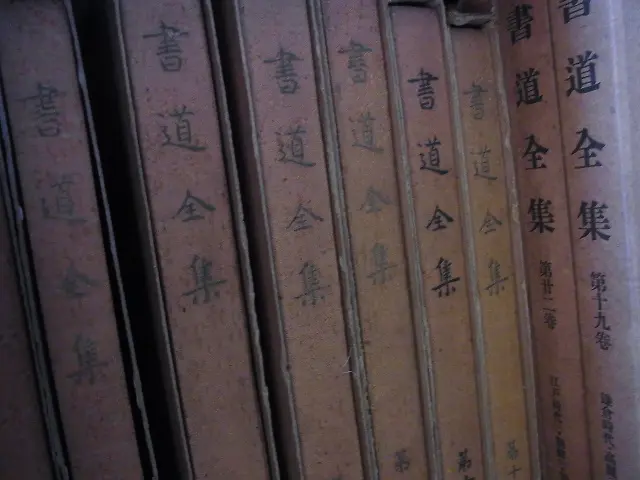 書道全集
書道全集
書道全集
書道全集 第
書道全集 第
書道全集 第十
書道全集 第廿二卷 江戸時代
書道全集 第十九卷 鎌倉時代